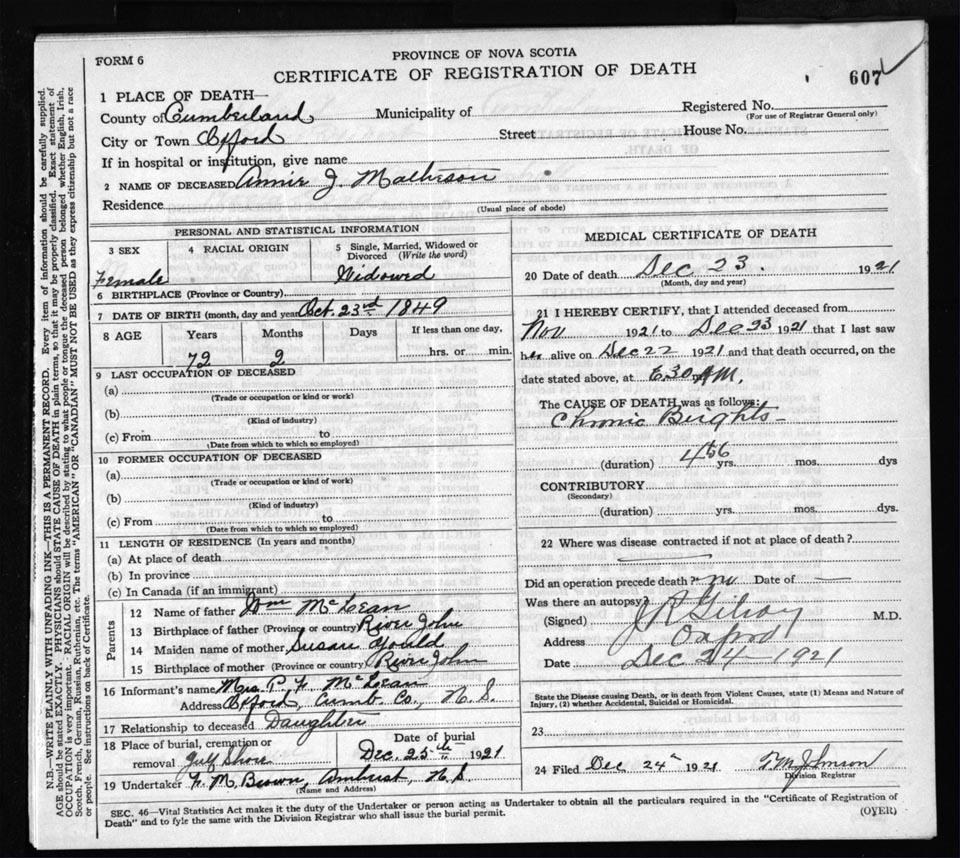 FORM 6
PROVINCE OF NOVA SCOTIA
CERTIFICATE OF REGISTRATION OF DEATH
607
1 PLACE OF DEATH—
County of Cumberland Municipality of Registered No.
(For use of Registrar General only)
City or Town Oxford Street House No.
If in hospital or institution, give name
2 NAME OF DECEASED Annie J. Matheson
Residence
(Usual place of abode)
PERSONAL AND STATISTICAL INFORMATION
3 SEX 4 RACIAL ORIGIN 5 Single, Married, Widowed or Divorced (Write the word)
Female Widowed
6 BIRTHPLACE (Province or Country)
7 DATE OF BIRTH (month, day and year) Oct. 23rd 1849
8 AGE Years Months Days If less than one day,
72 2 hrs. or min.
9 LAST OCCUPATION OF DECEASED
(a)
(Trade or occupation or kind or work)
(b)
(Kind of industry)
(c) From to
(Date from which to which so employed)
10 FORMER OCCUPATION OF DECEASED
(a)
(Trade or occupation or kind of work)
(b)
(Kind of industry)
(c) From to
(Date from which to which so employed)
11 LENGTH OF RESIDENCE (In years and months)
(a) At place of death
(b) In province
(c) In Canada (if an immigrant)
Parents
12 Name of father Wm McLean
13 Birthplace of father (Province or country) River John
14 Maiden name of mother Susan Gould
15 Birthplace of mother (Province or country) River John
16 Informant's name Mrs. P. McLean
Address Oxford, Cumb. Co., N. S.
17 Relationship to deceased Daughter
18 Place of burial, cremation or removal Gulf Shore Date of burial Dec. 25th 1921
19 Undertaker F. M. Brown, Amherst, N. S.
(Name and Address)
MEDICAL CERTIFICATE OF DEATH
20 Date of death Dec 23. 1921
(Month, day and year)
21 I HEREBY CERTIFY, that I attended deceased from
Nov 1921 to Dec 23 1921 that I last saw
her alive on Dec 22 1921 and that death occurred, on the
date stated above, at 6.30 AM.
The CAUSE OF DEATH was as follows:
Chronic Brights
(duration) yrs. mos. dys
CONTRIBUTORY
(Secondary)
(duration) yrs. mos. dys.
22 Where was disease contracted if not at place of death?
Did an operation precede death? no Date of —
Was there an autopsy?
(Signed) M.D.
Address Oxford
Date Dec 24 - 1921
State the Disease causing Death, or in death from Violent Causes, state (1) Means and Nature of
Injury, (2) whether Accidental, Suicidal or Homicidal.
23
24 Filed Dec 24th 1921 T M Johnson
Division Registrar
SEC. 46—Vital Statistics Act makes it the duty of the Undertaker or person acting as Undertaker to obtain all the particulars required in the "Certificate of Registration of
Death" and to fyle the same with the Division Registrar who shall issue the burial permit.
(OVER)
N.B.—WRITE PLAINLY WITH UNFADING INK—THIS IS A PERMANENT RECORD. Every item of information should be carefully supplied.
AGE should be stated EXACTLY. PHYSICIANS should STATE CAUSE OF DEATH in plain terms, so that it may be properly classified. Exact statement of
OCCUPATION is very important. RACIAL ORIGIN will be described by stating to what people or tongue the deceased person belonged whether English, Irish,
Scotch, French, German, Russian, Ruthenian, etc. The terms "AMERICAN" OR "CANADIAN" MUST NOT BE USED as they express citizenship but not a race
or people. See instructions on back of Certificate.